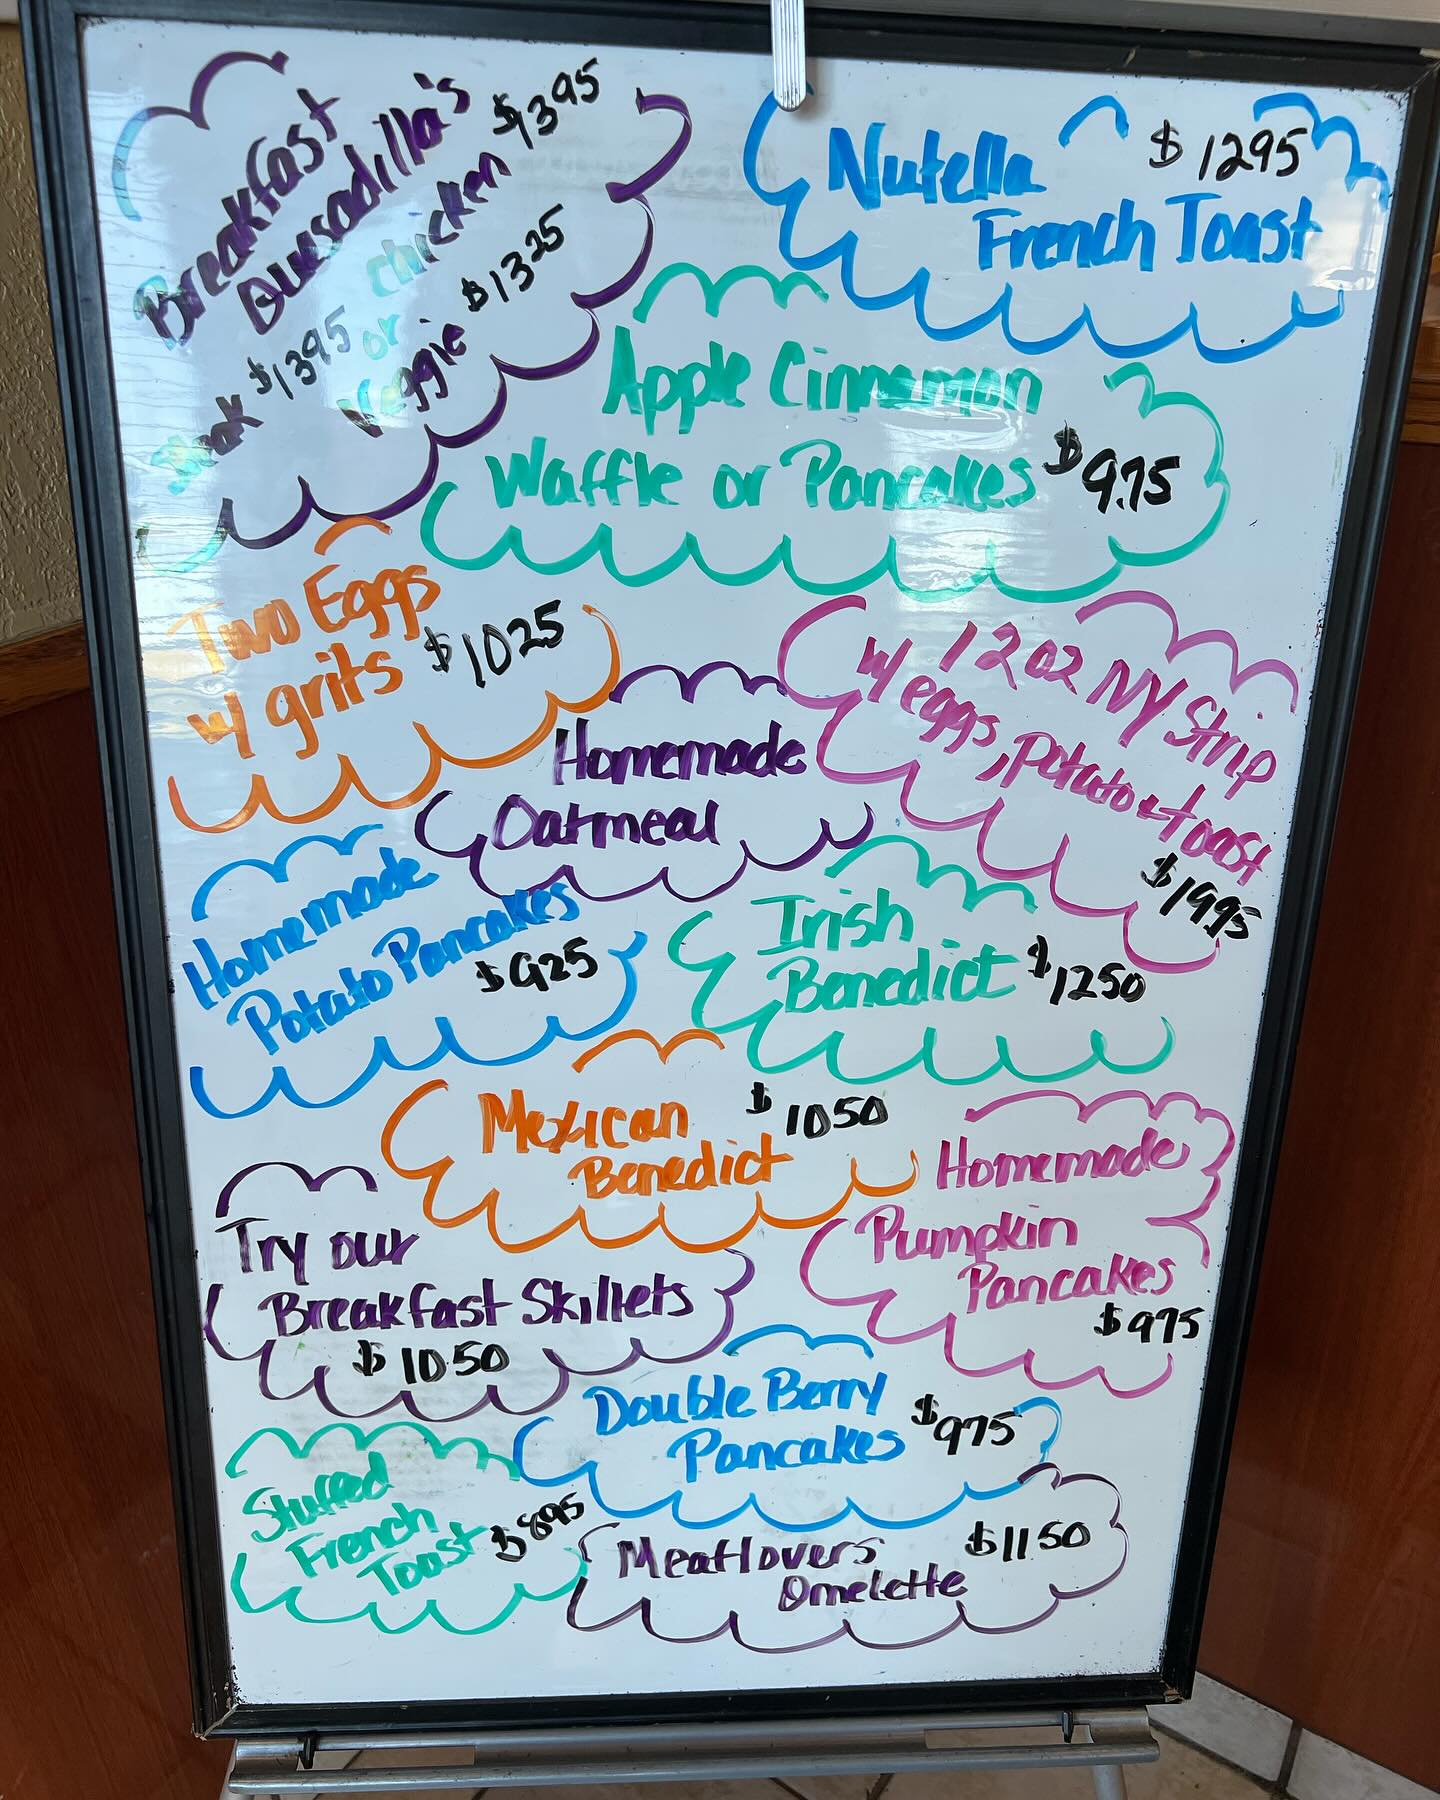 Breakfast
Quesadilla's
Steak $1395 or chicken $1395
Veggie $1325
Nutella $1295
French Toast
Apple Cinnamon
Waffle or Pancakes $9.75
Two Eggs
w/ grits $1025
12oz NY Strip
w/ eggs, potato & toast
$1995
Homemade
Oatmeal
Homemade
Potato Pancakes
$925
Irish
Benedict $1250
Mexican $1050
Benedict
Homemade
Pumpkin
Pancakes
$975
Try our
Breakfast Skillets
$10.50
Double Berry
Pancakes $975
Stuffed
French
Toast $895
Meatlovers $1150
Omelette